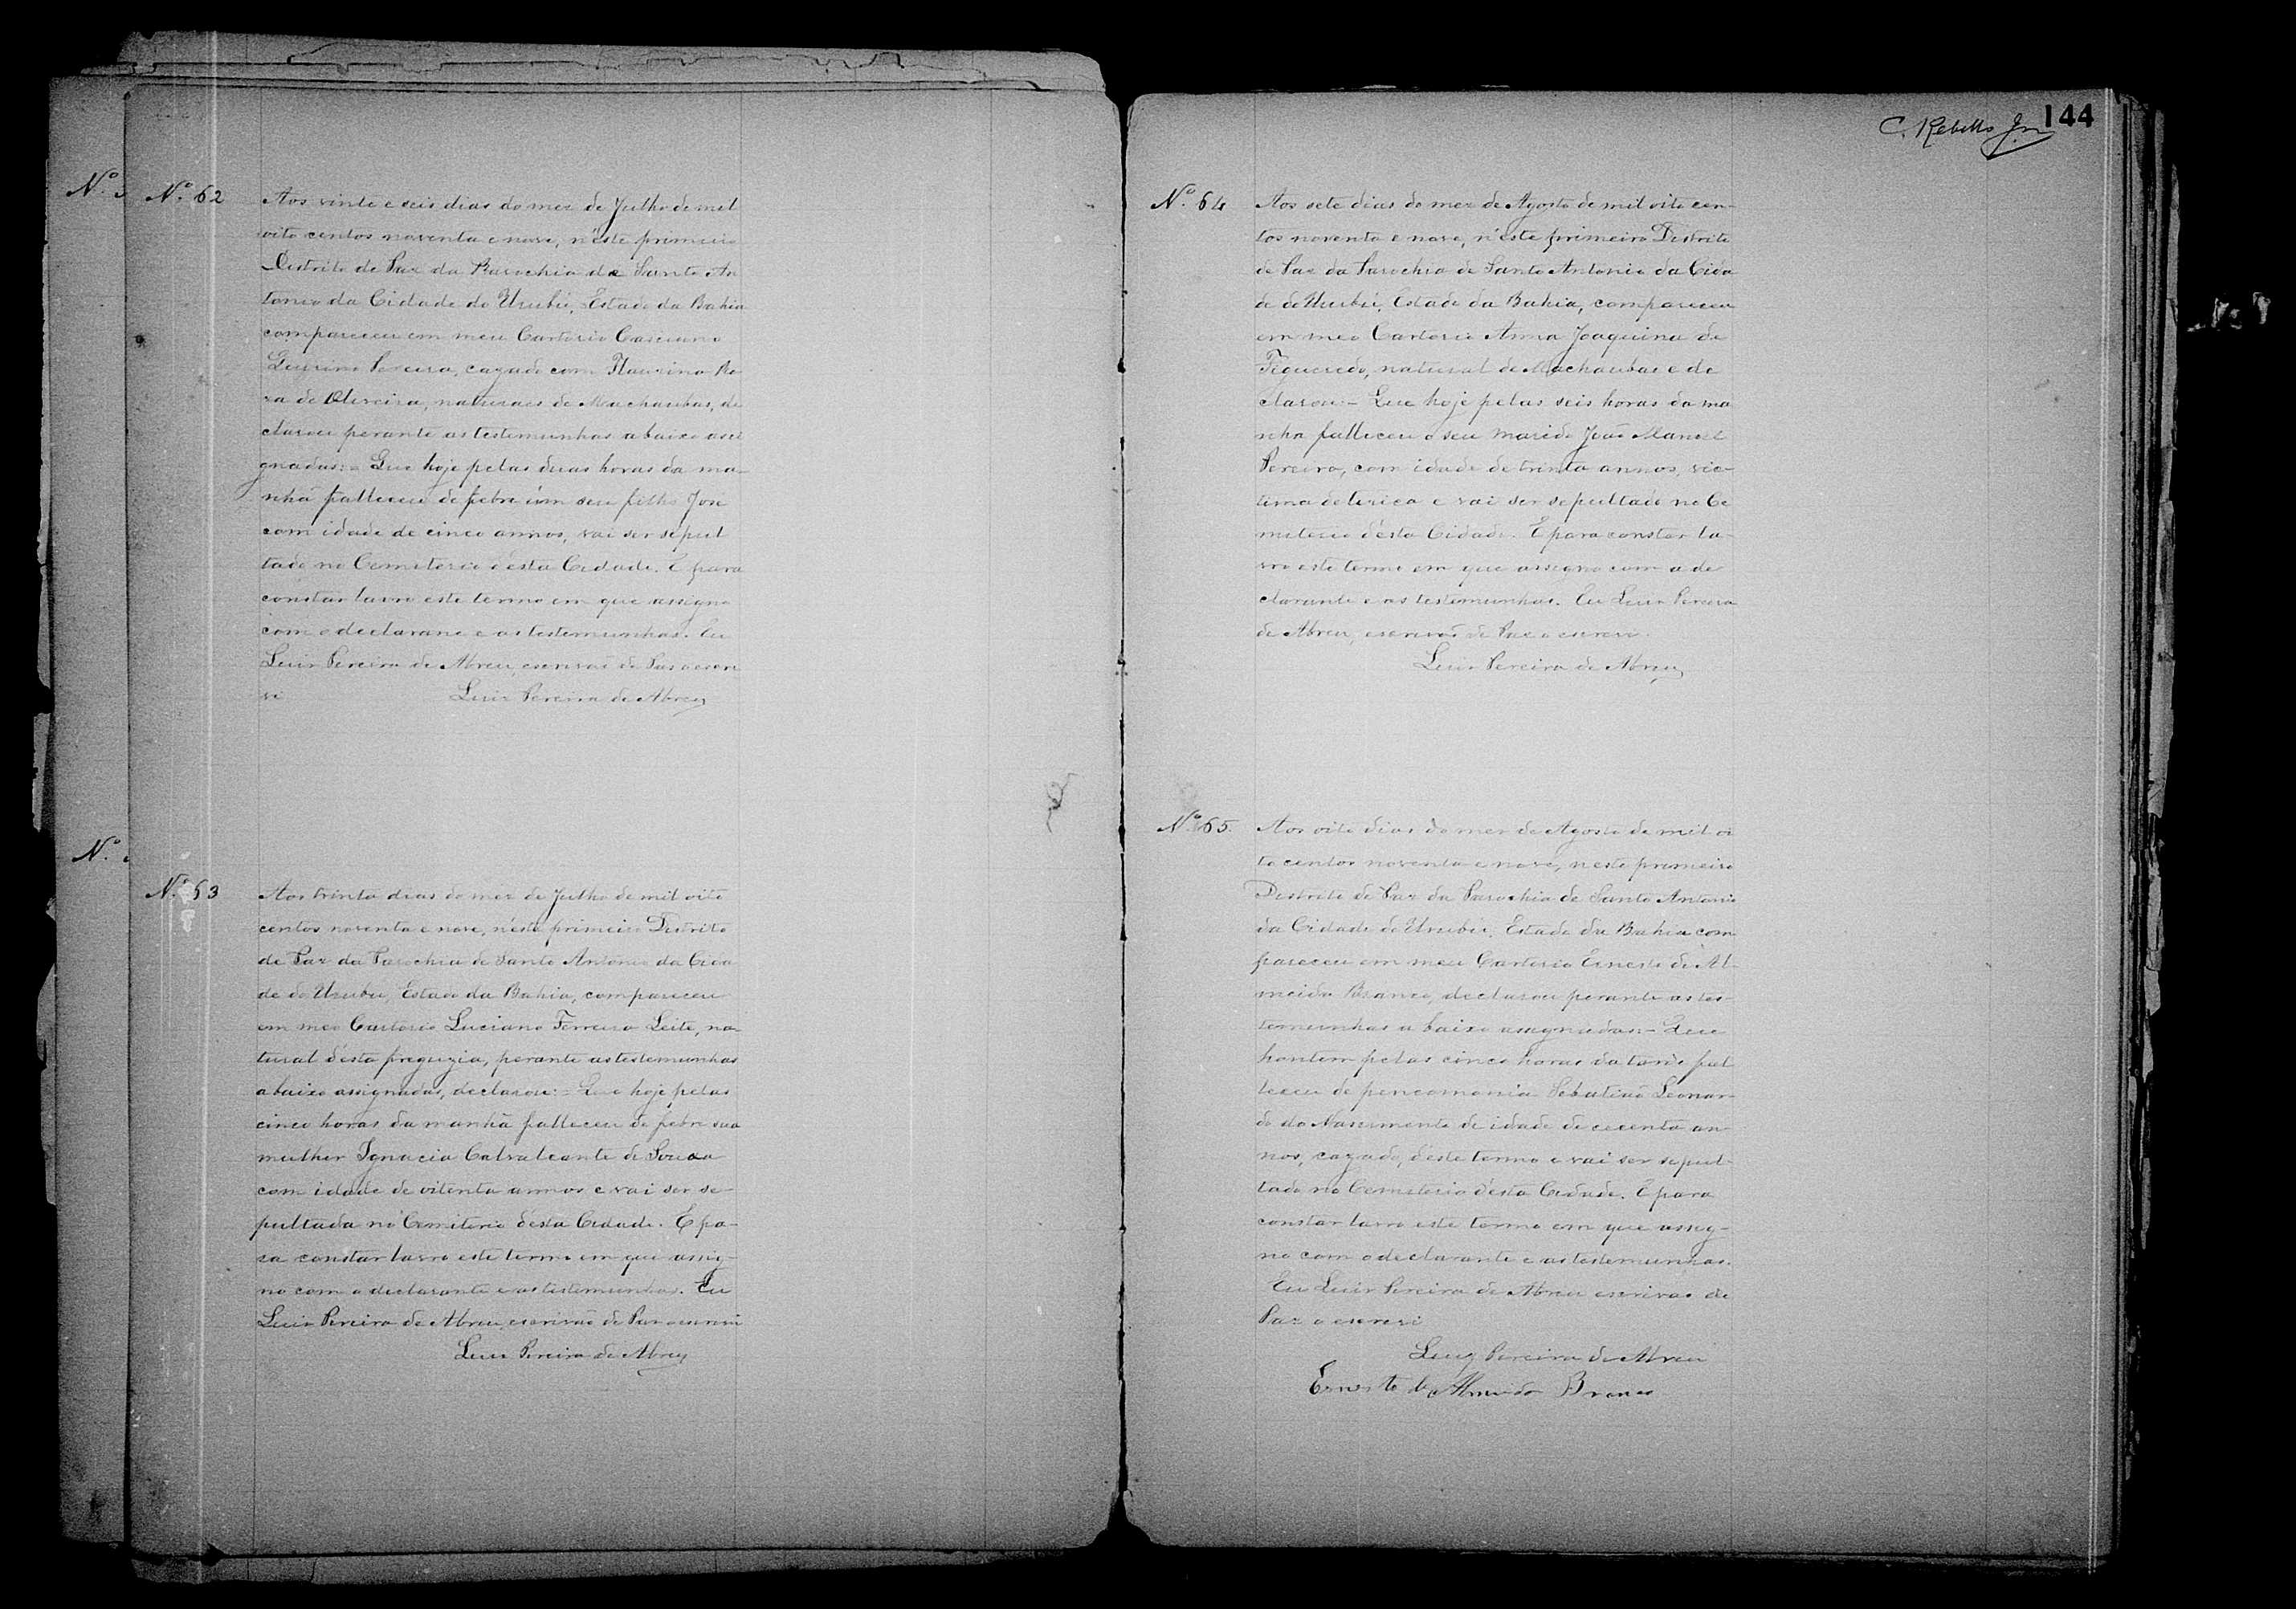 Nº 62
Aos vinte e seis dias do mez de Julho de mil
oito centos noventa e nove, n'este primeiro
Destrito de Paz da Parochia de Santo An
tonio da Cidade do Urubú, Estado da Bahia
compareceu em meu Cartorio Cassiano
Pereira, cazado com Flausina Ro
za de Oliveira, naturaes de Machaubas, de
clarou perante as testemunhas abaixo assi
gnadas:= Que hoje pelas duas horas da ma-
nhã falleceu de febre um seu filho José
com idade de cinco annos, vai ser sepul
tado no Cemiterio d'esta Cidade. E para
constar lavro este termo em que assigno
com o declarane e as testemunhas. Eu
Luiz Pereira de Abreu, escrivaõ de Paz o escre
vi Luiz Pereira de Abreu
Nº 63
Aos trinta dias do mez de Julho de mil oito
centos noventa e nove, n'este primeiro Destrito
de Paz da Parochia de Santo Antonio da Cida
de do Urubu, Estado da Bahia, compareceu
em meo Cartorio Luciano Ferreira Leite, na-
tural d'esta freguezia, perante as testemunhas
abaixo assignadas, declarou:= Que hoje pelas
cinco horas da manhã falleceu de febre sua
mulher Ignacia Calvalcante de Souza
com idade de oitenta annos e vai ser se-
pultada no Cemiterio d'esta Cidade. E pa-
ra constar lavro este termo em que assig-
no com o declarante e as testemunhas. Eu
Luiz Pereira de Abreu, escrivão de Paz o escrevi
Luiz Pereira de Abreu
C. Rebello Jr
144
Nº 64
Aos sete dias do mez de Agosto de mil oito cen-
tos noventa e nove, n'este primeiro Destrito
de Paz da Parochia de Santo Antonio da Cida
de do Urubú, Estado da Bahia, compareceu
em meo Cartorio Anna Joaquina de
Figueredo, natural de Machaubas e de
clarou:- Que hoje pelas seis horas da ma
nha falleceu o seu marido João Manoel
Pereira, com idade de trinta annos, vic-
tima de e vai ser sepultado no Ce
miterio d'esta Cidade. E para constar la-
vro este termo em que assigno com a de
clarante e as testemunhas. Eu Luiz Pereira
de Abreu, escrivaõ de Paz o escrevi.
Luiz Pereira de Abreu
Nº 65.
Aos oito dias do mez de Agosto de mil oi
to centos noventa e nove, neste primeiro
Destrito de Paz da Parochia de Santo Antonio
da Cidade do Urubú, Estado da Bahia com
pareceu em meu Cartorio Ernesto de Al-
meida Branco, declarou perante as tes-
temunhas abaixo assignadas:- Que
hontem pelas cinco horas da tarde fal
leceu de peneomonia Sebatiaõ Leonar-
do do Nascimento de idade de cecenta an-
nos, cazado, d'este termo e vai ser sepul-
tado no Cemiterio d'esta Cidade. E para
constar lavro este termo em que assig-
no com o declarante e as testemunhas.
Eu Luiz Pereira de Abreu escrivao de
Paz o escrevi
Luiz Pereira de Abreu
Ernesto de Almeida Branco